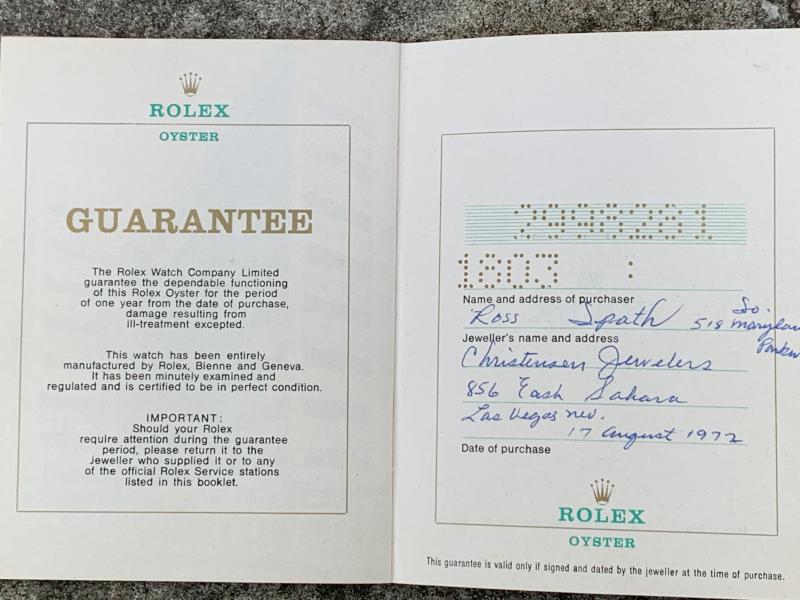 ROLEX
OYSTER
GUARANTEE
The Rolex Watch Company Limited
guarantee the dependable functioning
of this Rolex Oyster for the period
of one year from the date of purchase,
damage resulting from
ill-treatment excepted.
This watch has been entirely
manufactured by Rolex, Bienne and Geneva.
It has been minutely examined and
regulated and is certified to be in perfect condition.
IMPORTANT:
Should your Rolex
require attention during the guarantee
period, please return it to the
jeweller who supplied it or to any
of the official Rolex Service stations
listed in this booklet.
2998281
1803 :
Name and address of purchaser
Ross Spath 518 So. Marylan
Parkw
Jeweller's name and address
Christensen Jewelers
856 East Sahara
Las Vegas Nev.
17 August 1972
Date of purchase
ROLEX
OYSTER
This guarantee is valid only if signed and dated by the jeweller at the time of purchase.